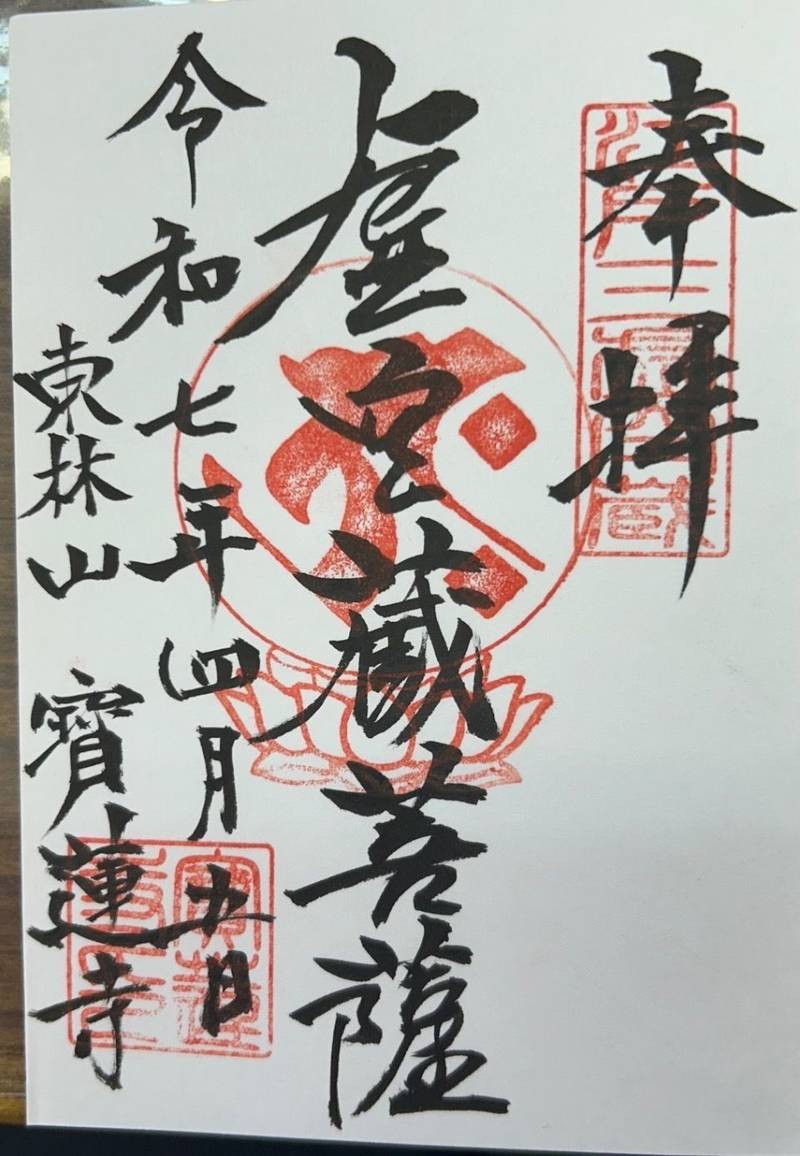 奉拝
虚空藏菩薩
令和七年四月五日
東林山 寶蓮寺